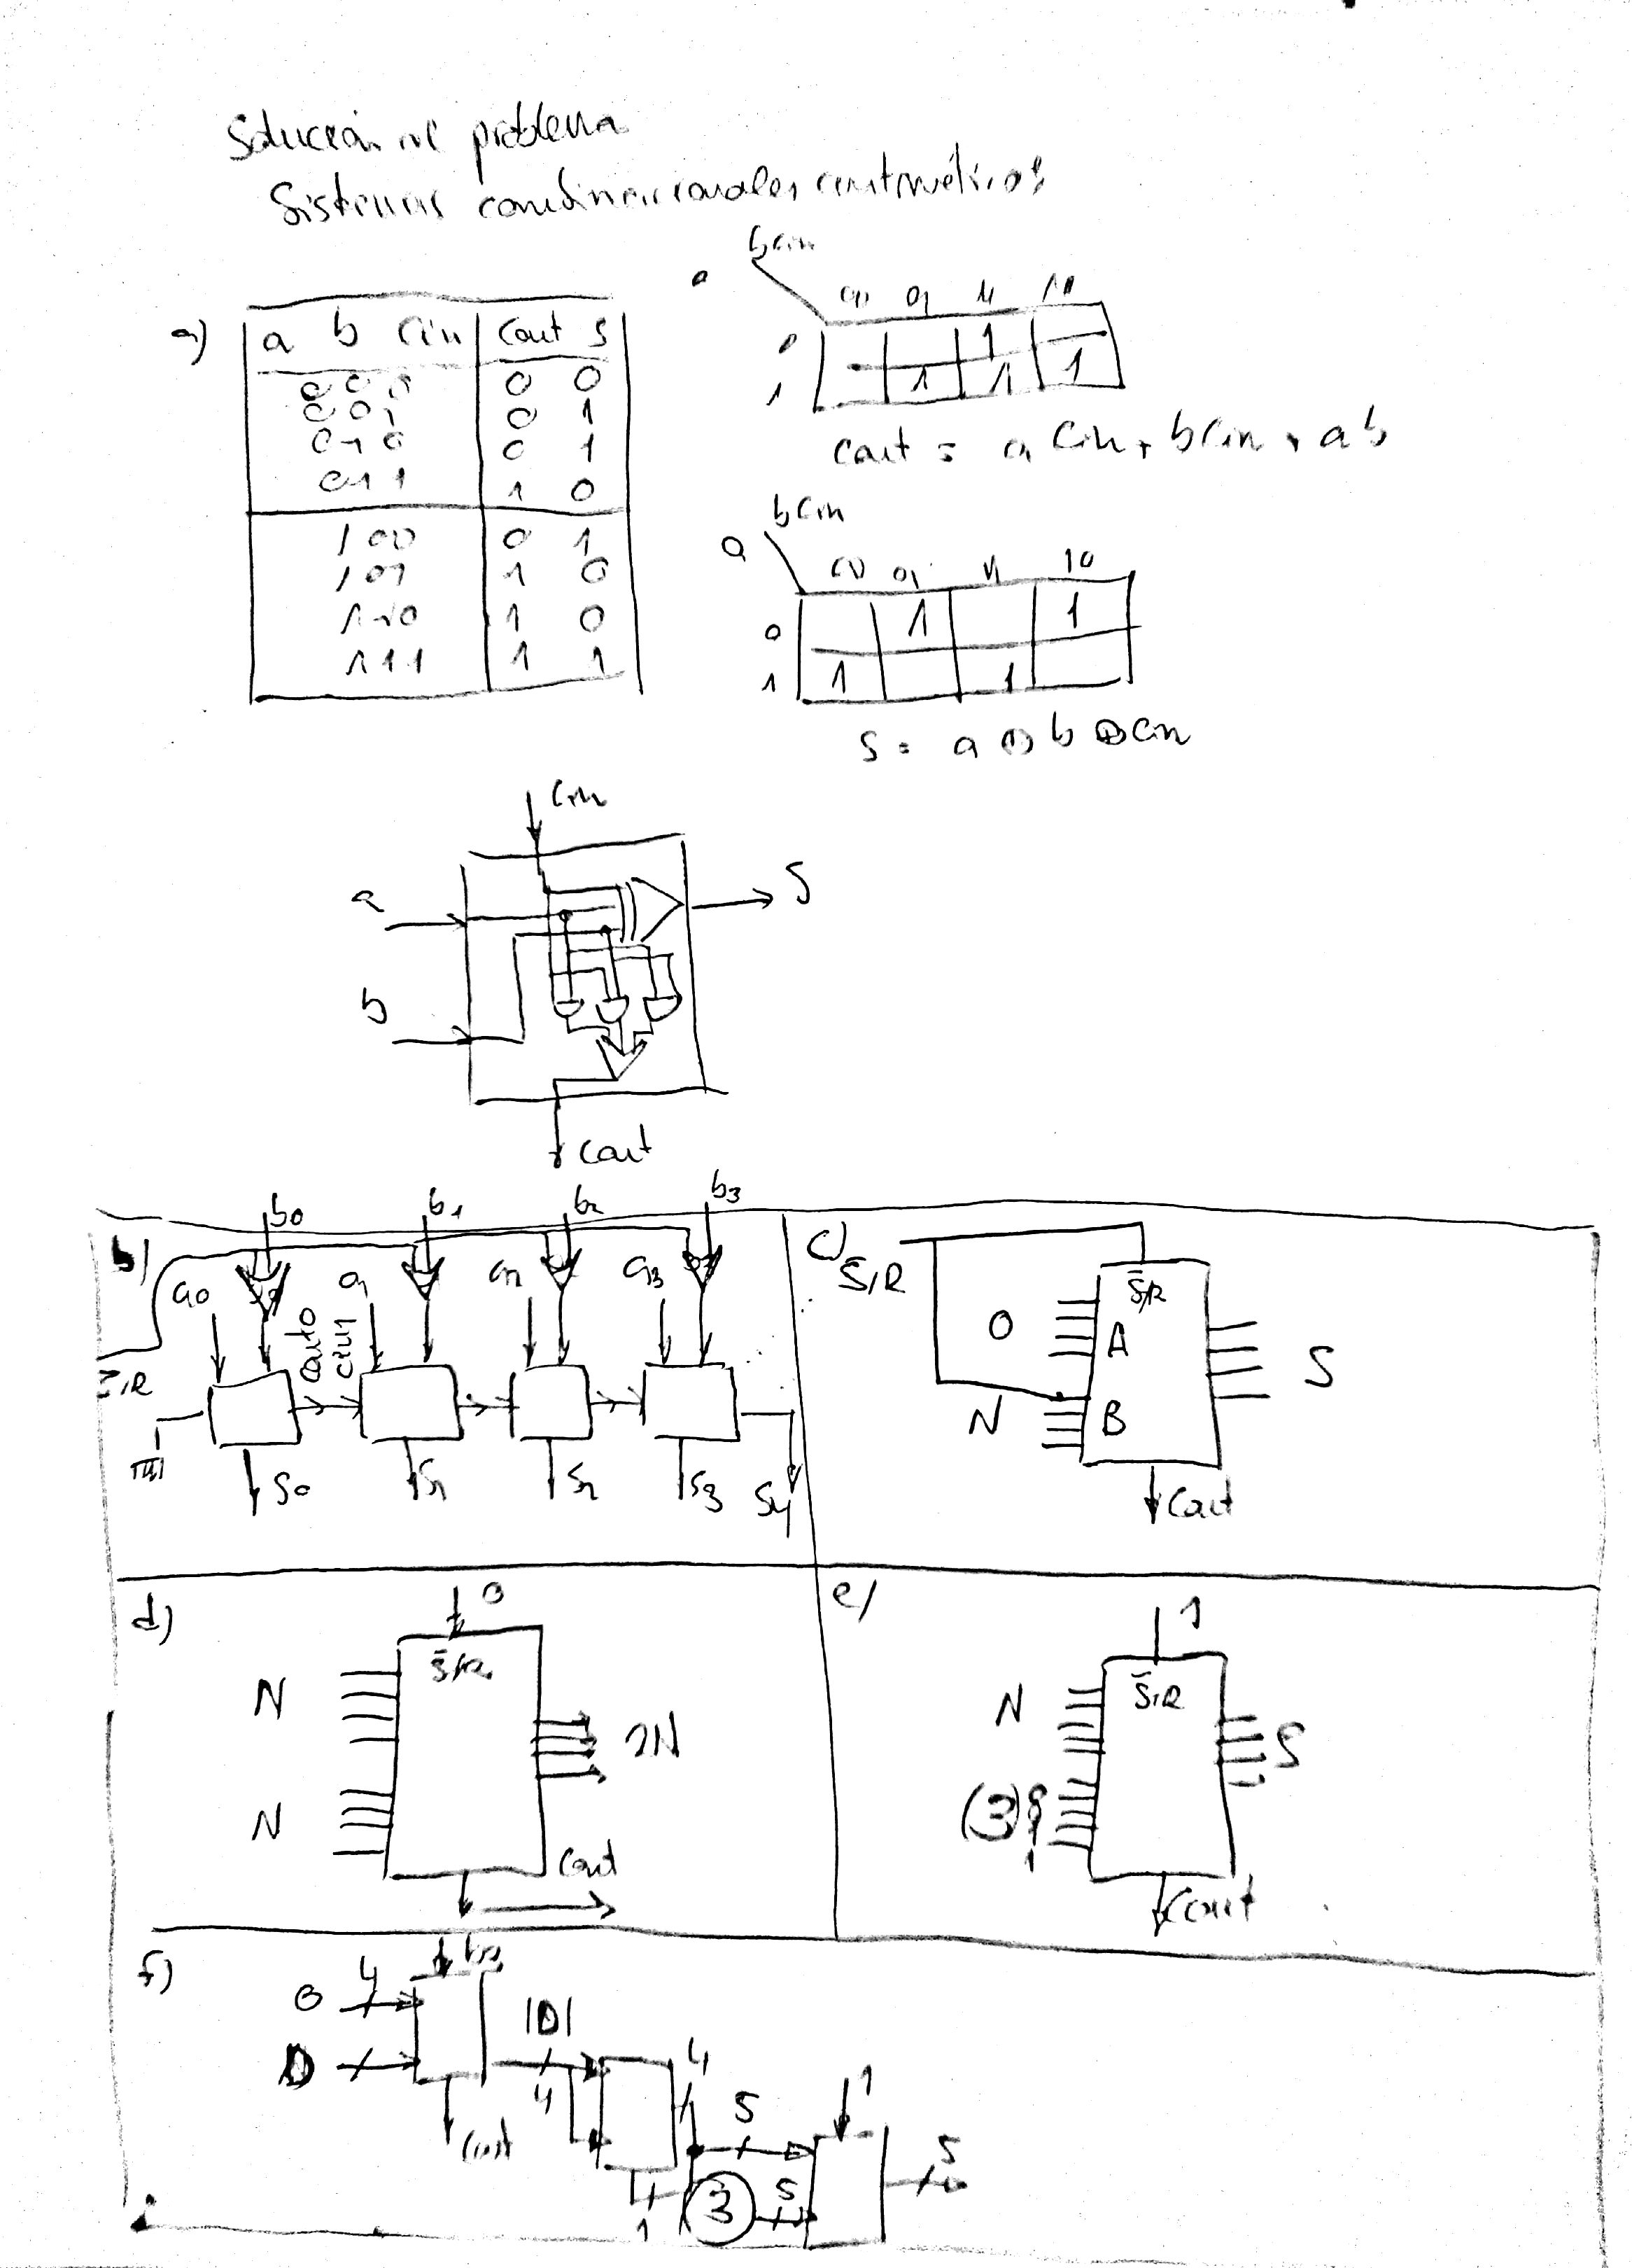 Solución al problema
Sistemas combinacionales aritméticos
a)
a b Cin Cout S
0 0 0 0 0
0 0 1 0 1
0 1 0 0 1
0 1 1 1 0
1 0 0 0 1
1 0 1 1 0
1 1 0 1 0
1 1 1 1 1
b cin
a
00 01 11 10
0 1
1 1 1 1
Cout = a Cin + b Cin + a b
b Cin
a
00 01 11 10
0 1 1
1 1 1
S = a ⊕ b ⊕ Cin
Cin
a
S
b
Cout
b)
b0 b1 b2 b3
a0 a1 a2 a3
S̄/R
Cout0
Cin1
S0 S1 S2 S3 S4
c)
S̄/R
S̄/R
0 A
S
N B
Cout
d)
0
S̄/R
N
2N
N
Cout
e)
1
S̄/R
N
S
(3) 0
0
1
1
Cout
f)
0 4
D
|D|
4
Cout
4
1
5
1
3 5
5